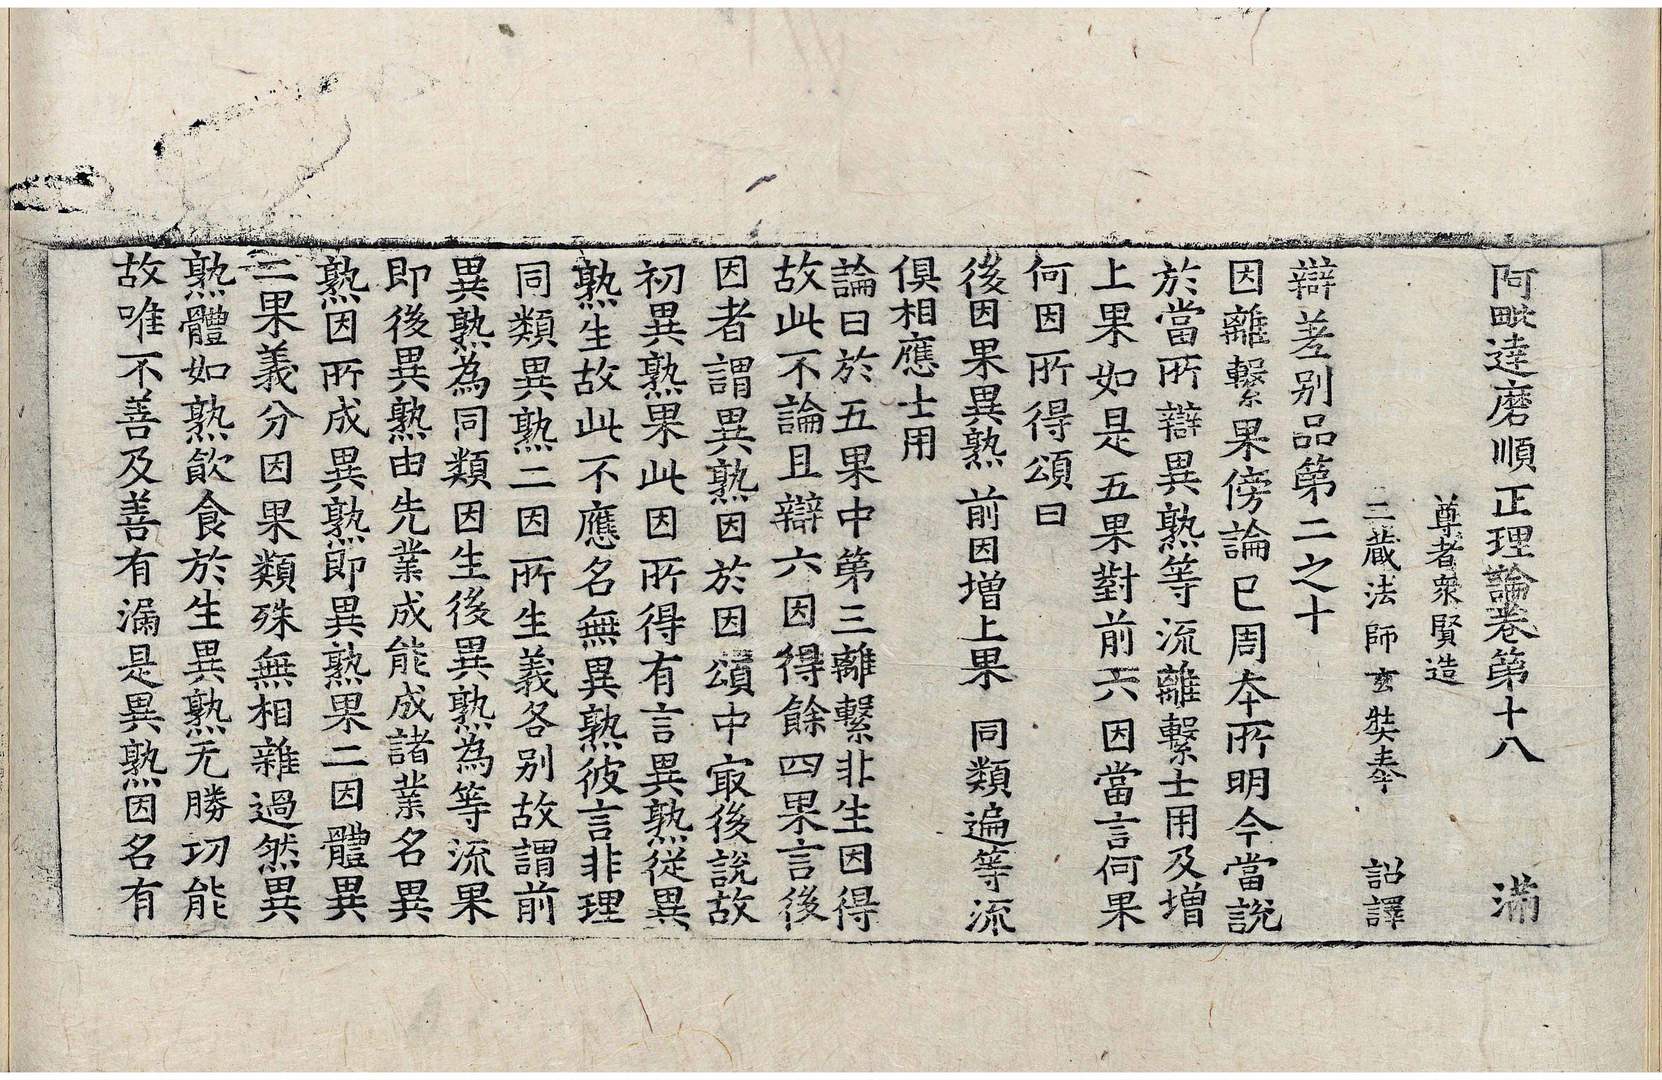 阿毗達磨順正理論卷第十八 滿
尊者衆賢造
三藏法師玄奘奉 詔譯
辯差別品第二之十
因離繫果傍論已周本所明今當說
於當所辯異熟等流離繫士用及增
上果如是五果對前六因當言何果
何因所得頌曰
後因果異熟 前因增上果 同類遍等流
俱相應士用
論曰於五果中第三離繫非生因得
故此不論且辯六因得餘四果言後
因者謂異熟因於因頌中㝡後說故
初異熟果此因所得有言異熟從異
熟生故此不應名無異熟彼言非理
同類異熟二因所生義各別故謂前
異熟為同類因生後異熟為等流果
即後異熟由先業成能成諸業名異
熟因所成異熟即異熟果二因體異
二果義分因果類殊無相雜過然異
熟體如熟飲食於生異熟无勝功能
故唯不善及善有漏是異熟因名有